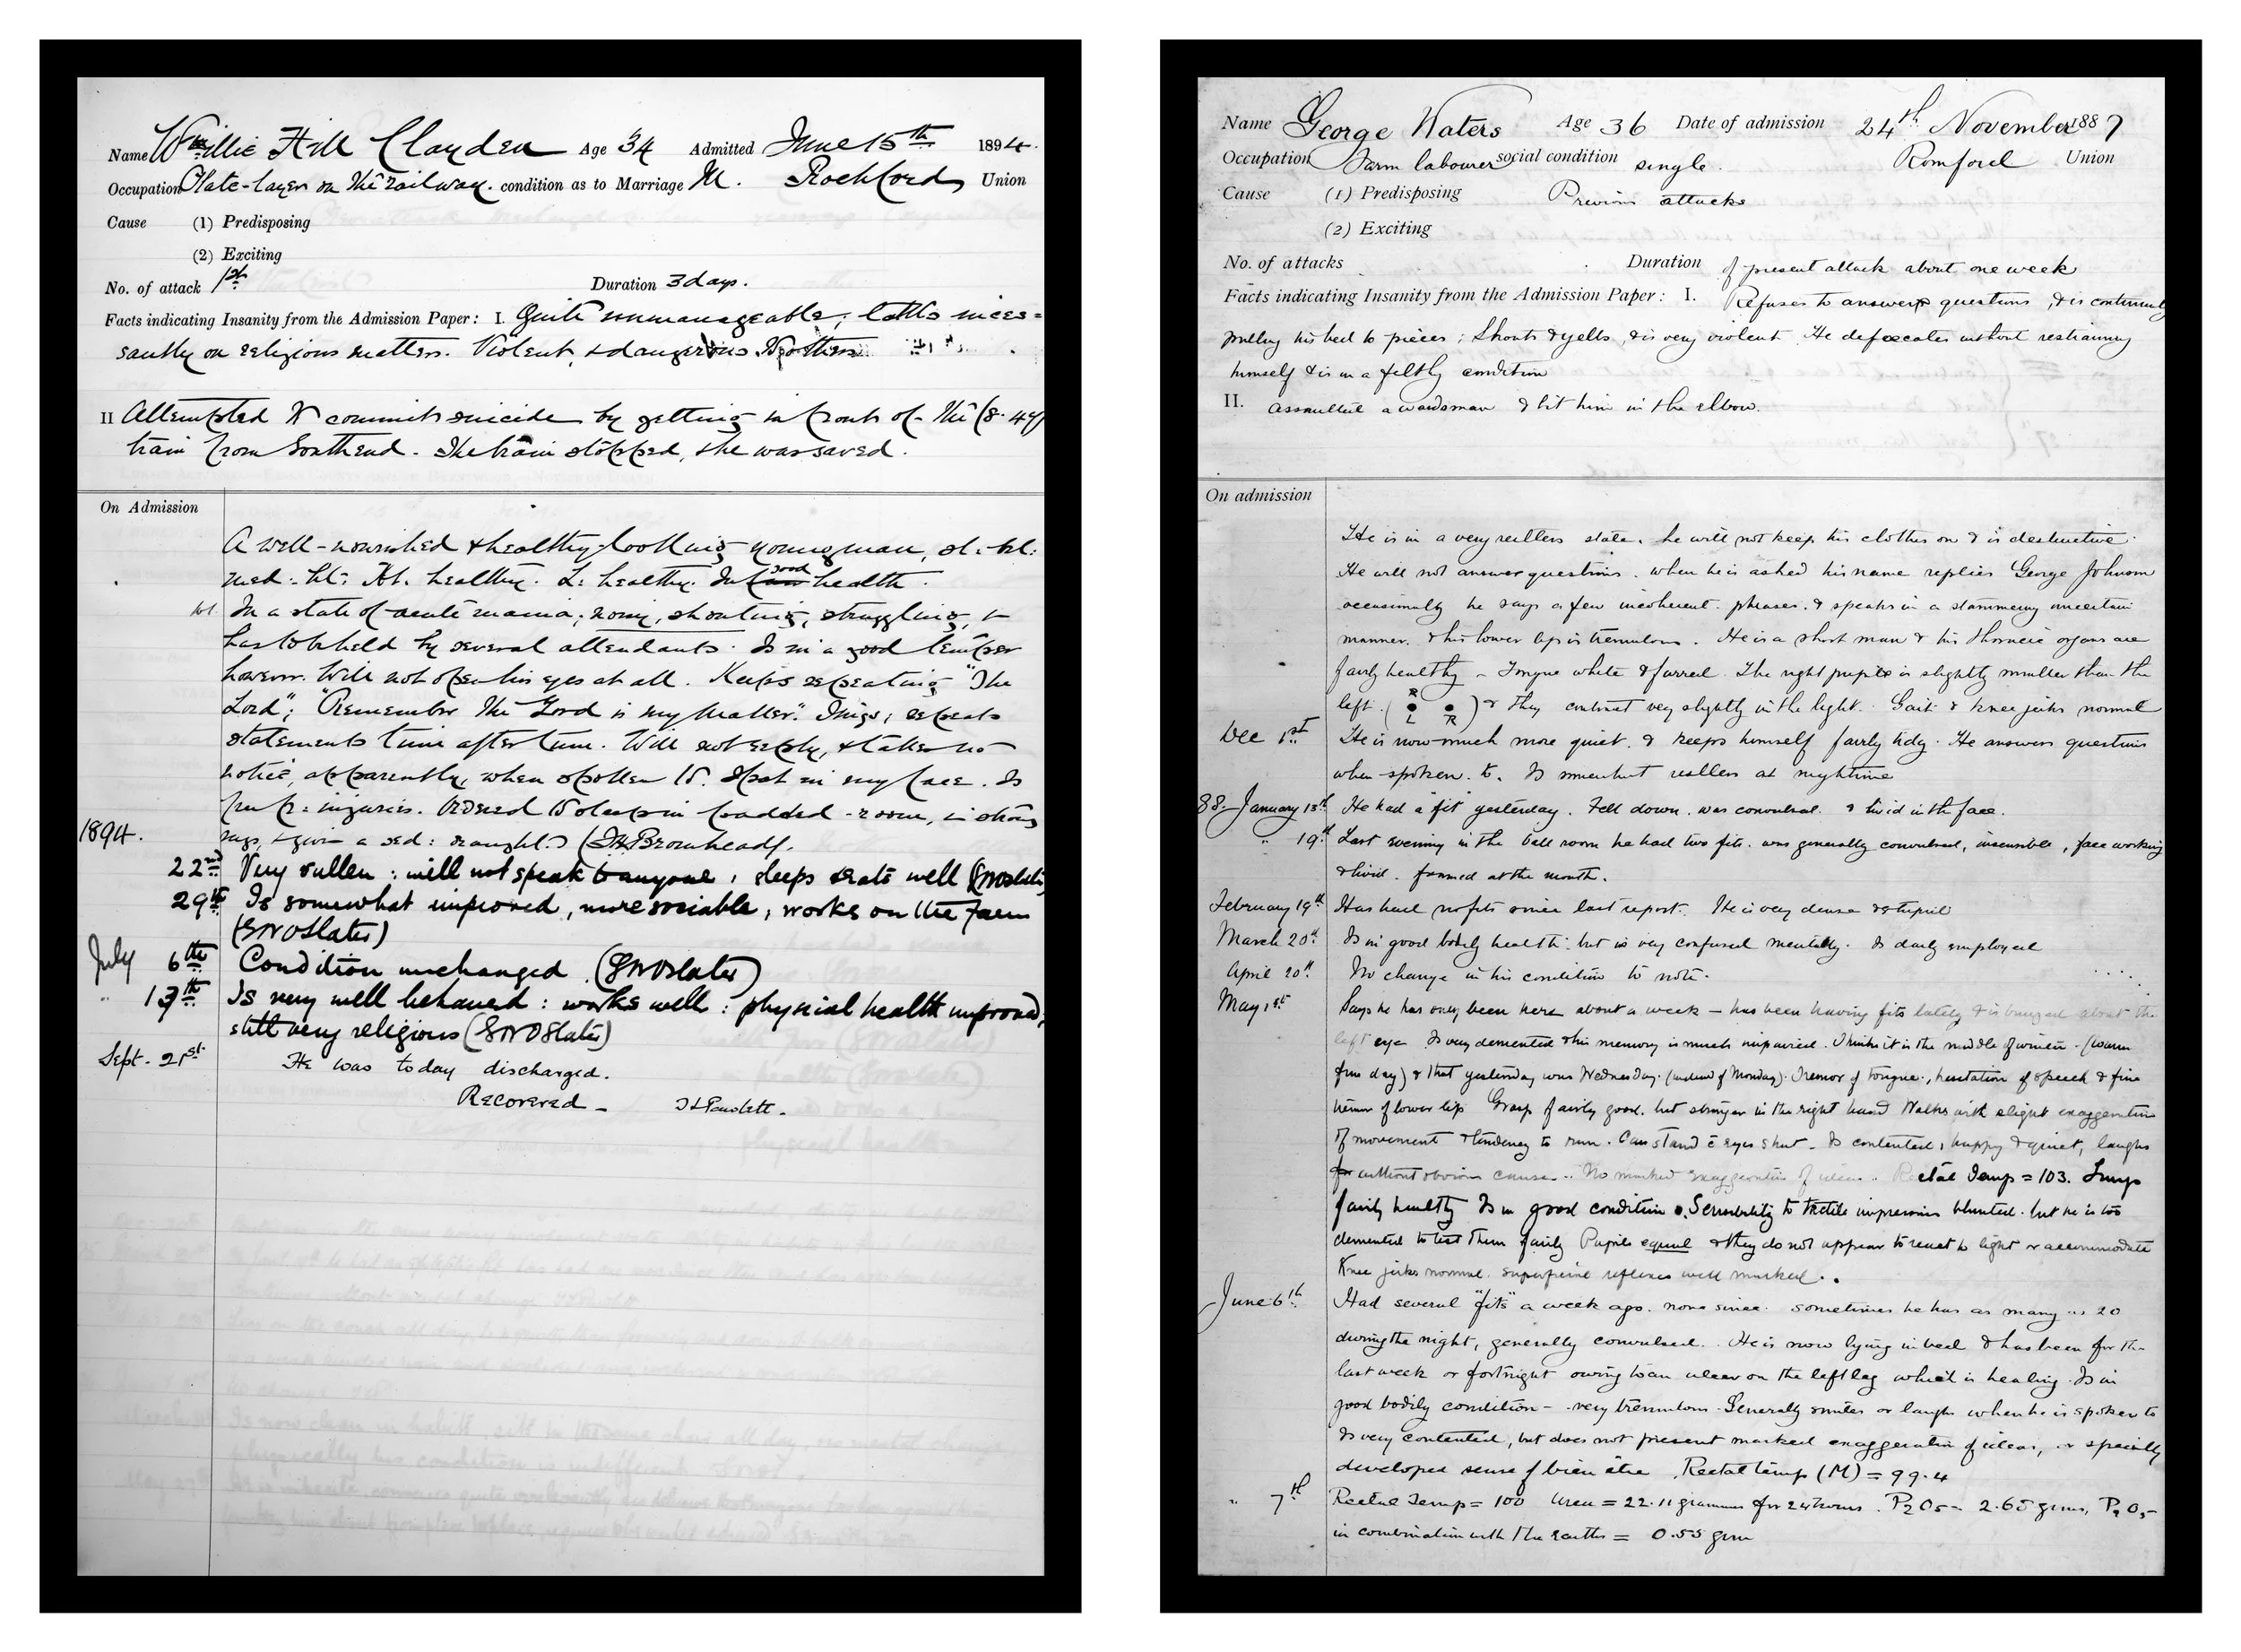 Name Willie Hill Clayden Age 34 Admitted June 15th 1894.
Occupation Plate-layer on the railway. condition as to Marriage M. Rochford Union
Cause (1) Predisposing
(2) Exciting
No. of attack 1st Duration 3 days.
Facts indicating Insanity from the Admission Paper: I. Quite unmanageable; talks inces=
santly on religious matters. Violent, & dangerous
II Attempted to commit suicide by getting in front of the (8.49)
train from Southend. The train stopped, & he was saved.
On Admission
A well-nourished & healthy-looking young man,
med. ht: Ht. healthy. L: healthy. In good health.
In a state of acute mania; noisy, shouting, struggling, &
has to be held by several attendants. Is in a good temper
however. Will not open his eyes at all. Keeps repeating "The
Lord"; "Remember the Lord is my Master". Sings; repeats
statements time after time. Will not reply, & takes no
notice, apparently, when spoken to. Spat in my face. Is
free fr: injuries. Ordered to sleep in padded-room, in strong
1894. rugs, & given a sed: draught.
22nd Very sullen: will not speak to anyone; sleeps & eats well
29th Is somewhat improved, more sociable, works on the farm
(SWOSlater)
July 6th Condition unchanged. (SWOSlater)
" 13th Is very well behaved: works well: physical health improved;
still very religious (SWOSlater)
Sept. 21st. He was today discharged.
Recovered -
Name George Waters Age 36 Date of admission 24th November 1887
Occupation Farm labourer social condition single. Romford Union
Cause (1) Predisposing Previous attacks
(2) Exciting
No. of attacks Duration of present attack about one week
Facts indicating Insanity from the Admission Paper: I. Refuses to answer questions, & is continually
pulling his bed to pieces; Shouts & yells, & is very violent. He defoecates without restraining
himself & is in a filthy condition
II. Assaulted a wardsman & bit him in the elbow.
On admission
He is in a very restless state. he will not keep his clothes on & is destructive.
He will not answer questions. when he is asked his name replies George Johnson
occasionally he says a few incoherent phrases. & speaks in a stammering uncertain
manner. & his lower lip is tremulous. He is a short man & his thoracic organs are
fairly healthy - Tongue white & furred. The right pupil is slightly smaller than the
left. ( R L R ) & they contract very slightly in the light. Gait & knee jerks normal
Dec 1st He is now much more quiet, & keeps himself fairly tidy. He answers questions
when spoken to. Is somewhat restless at nightime
88. January 13th He had a "fit" yesterday. Fell down. was convulsed. & livid in the face.
" 19th Last evening in the ball room he had two fits. was generally convulsed, insensible, face working
& livid. foamed at the mouth.
February 19th Has had no fits since last report. He is very dense & stupid
March 20th Is in good bodily health: but is very confused mentally. Is daily employed
April 20th No change in his condition to note.
May 1st Says he has only been here about a week - has been having fits lately & is bruised about the
left eye Is very demented & his memory is much impaired. Thinks it is the middle of winter. (warm
fine day) & that yesterday was Wednesday. (instead of Monday). Tremor of tongue, hesitation of speech & fine
tremor of lower lip Grasp fairly good. but stronger in the right hand Walks with slight exaggeration
of movement & tendency to run. Can stand c̄ eyes shut. Is contented, happy & quiet, laughs
for without obvious cause. No marked exaggeration of ideas. Rectal Temp = 103. Lungs
fairly healthy Is in good condition. Sensibility to tactile impressions blunted. but he is too
demented to test them fairly Pupils equal & they do not appear to react to light or accommodate
Knee jerks normal. superficial reflexes well marked.
June 6th. Had several "fits" a week ago. none since. sometimes he has as many as 20
during the night, generally convulsed. He is now lying in bed & has been for the
last week or fortnight owing to an ulcer on the left leg which is healing. Is in
good bodily condition - very tremulous. Generally smiles or laughs when he is spoken to
Is very contented, but does not present marked exaggeration of ideas, or specially
developed sense of bien être. Rectal temp (M) = 99.4
" 7th Rectal Temp = 100 Urea = 22.11 grammes for 24 hours. P2O5 - 2.65 grms, P2O5-
in combination with the earths = 0.55 grm